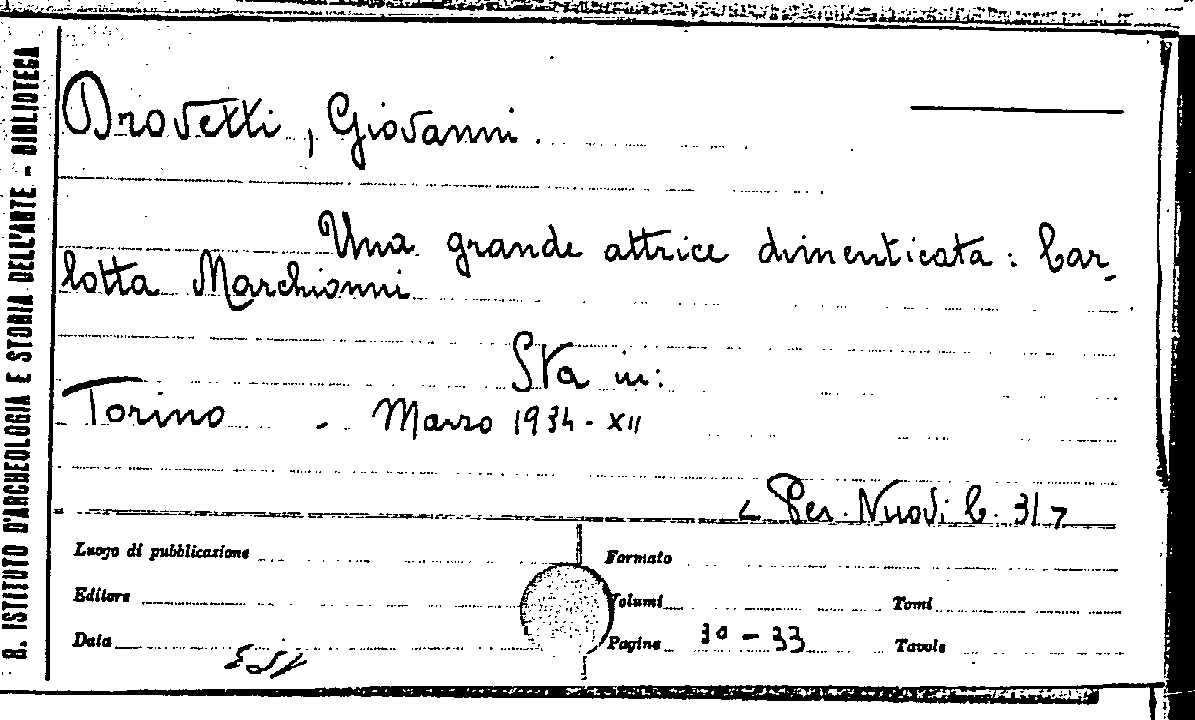 R. ISTITUTO D'ARCHEOLOGIA E STORIA DELL'ARTE - BIBLIOTECA
Drovetti, Giovanni.
Una grande attrice dimenticata: Car-
lotta Marchionni
Sta in:
Torino - Marzo 1934-XII
< Per. Nuovi C. 31 >
Luogo di pubblicazione
Formato
Editore
Volumi
Tomi
Data
Pagine 30-33
Tavole